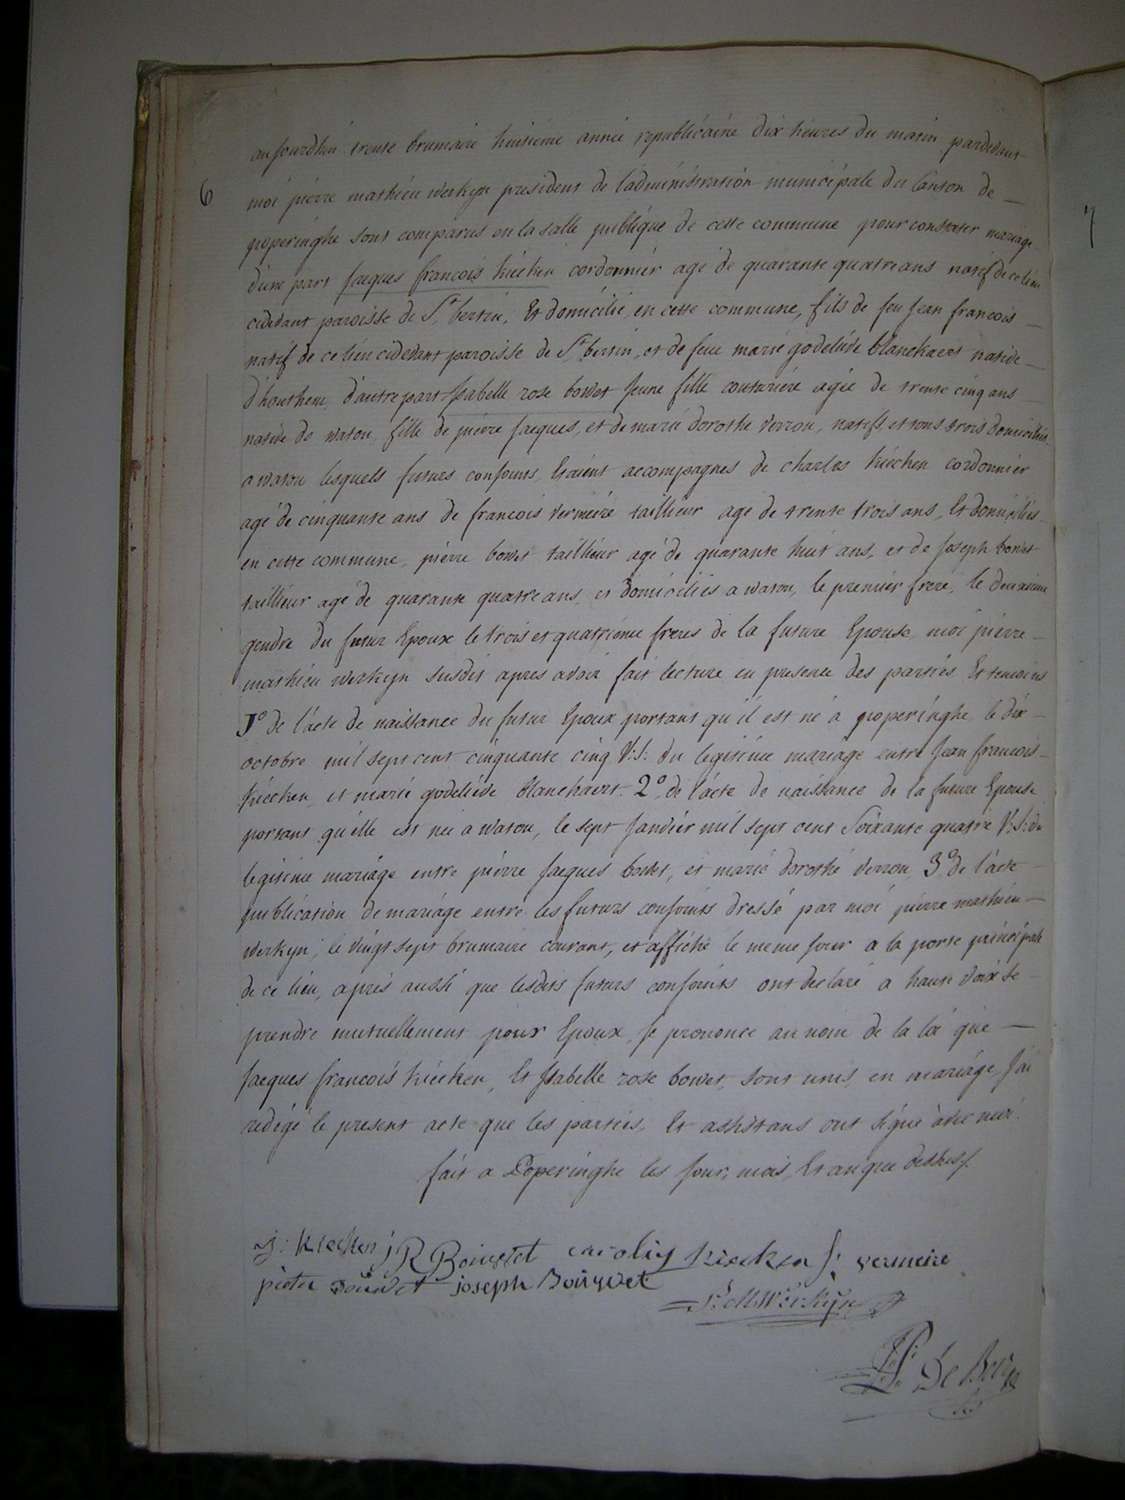 aujourdhui trente brumaire huitieme année republicaine dix heures du matin pardevant
6
moi pierre mathieu werkyn president de l'administration municipale du Canton de
poperinghe sont comparus en la salle publique de cette commune pour constater mariage
d'une part Jacques francois kiecken cordonnier agé de quarante quatre ans natif de ce lieu
cidevant paroisse de St. bertin, Et domicilié en cette commune, fils de feu Jean francois
natif de ce lieu cidevant paroisse de St bertin, et de feue marie godelieve blanckaert native
d'houthem, d'autre part Isabelle rose bowet Jeune fille couturière agée de trente cinq ans
native de watou, fille de pierre Jacques, et de marie dorothe verrou, natifs et tous trois domiciliés
a watou lesquels futurs conjoints, Etaient accompagnes de charles kiecken cordonnier
agé de cinquante ans de francois vermeire taillieur agé de trente trois ans, Et domiciliés
en cette commune, pierre bowet taillieur agé de quarante huit ans, et de Joseph bowet
taillieur agé de quarante quatre ans, et domiciliés a watou, le premier frere, le deuxieme
gendre du futur Epoux le trois et quatrieme freres de la future Epouse, moi pierre
mathieu werkyn susdit apres avoir fait lecture en presence des parties Et temoins
1º de l'acte de naissance du futur Epoux portant qu'il est né a poperinghe le dix
octobre mil sept cent cinquante cinq V:S: du legitime mariage entre Jean francois
kiecken, et marie godelieve blanckaert. 2º, de l'acte de naissance de la future Epouse
portant qu'elle est nee a watou, le sept Janvier mil sept cent Soixante quatre V:S: du
legitime mariage entre pierre Jacques bowet, et marie dorothé verrou, 3º de l'acte
publication de mariage entre les futurs conjoints dressé par moi pierre mathieu
werkyn, le vingt sept brumaire courant, et affiché le meme jour a la porte principale
de ce lieu, après aussi que lesdits futurs conjoints ont declaré a haute voix se
prendre mutuellement pour Epoux, Je prononce au nom de la loi que
Jacques francois kiecken, Et Isabelle rose bowet, sont unis en mariage J'ai
redigé le present acte que les parties, Et assistans ont signé avec moi.
fait a Poperinghe les jour, mois, Et an que dessus/.
j: kiecken j R Bouwet carolus kiecken f: vermeire
pieter Bouwet joseph Bouwet
P: M: Werkijn